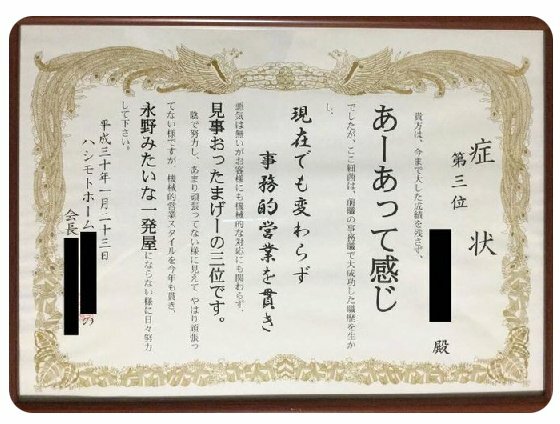 症状
第三位
殿
貴方は、今まで大した成績を残さず、
あーあって感じ
でしたが、ここ細畑は、前職の事務職で大成功した職歴を生か
し、
現在でも変わらず
事務的営業を貫き
悪気は無いがお客様にも機械的な対応にも関わらず、
見事おったまげーの三位です。
陰で努力し、あまり頑張ってない様に見えて やはり頑張っ
てない様ですが 機械的営業スタイルを今年も貫き、
永野みたいな一発屋にならない様に日々努力
して下さい。
平成三十年一月二十三日
ハシモトホーム
会長